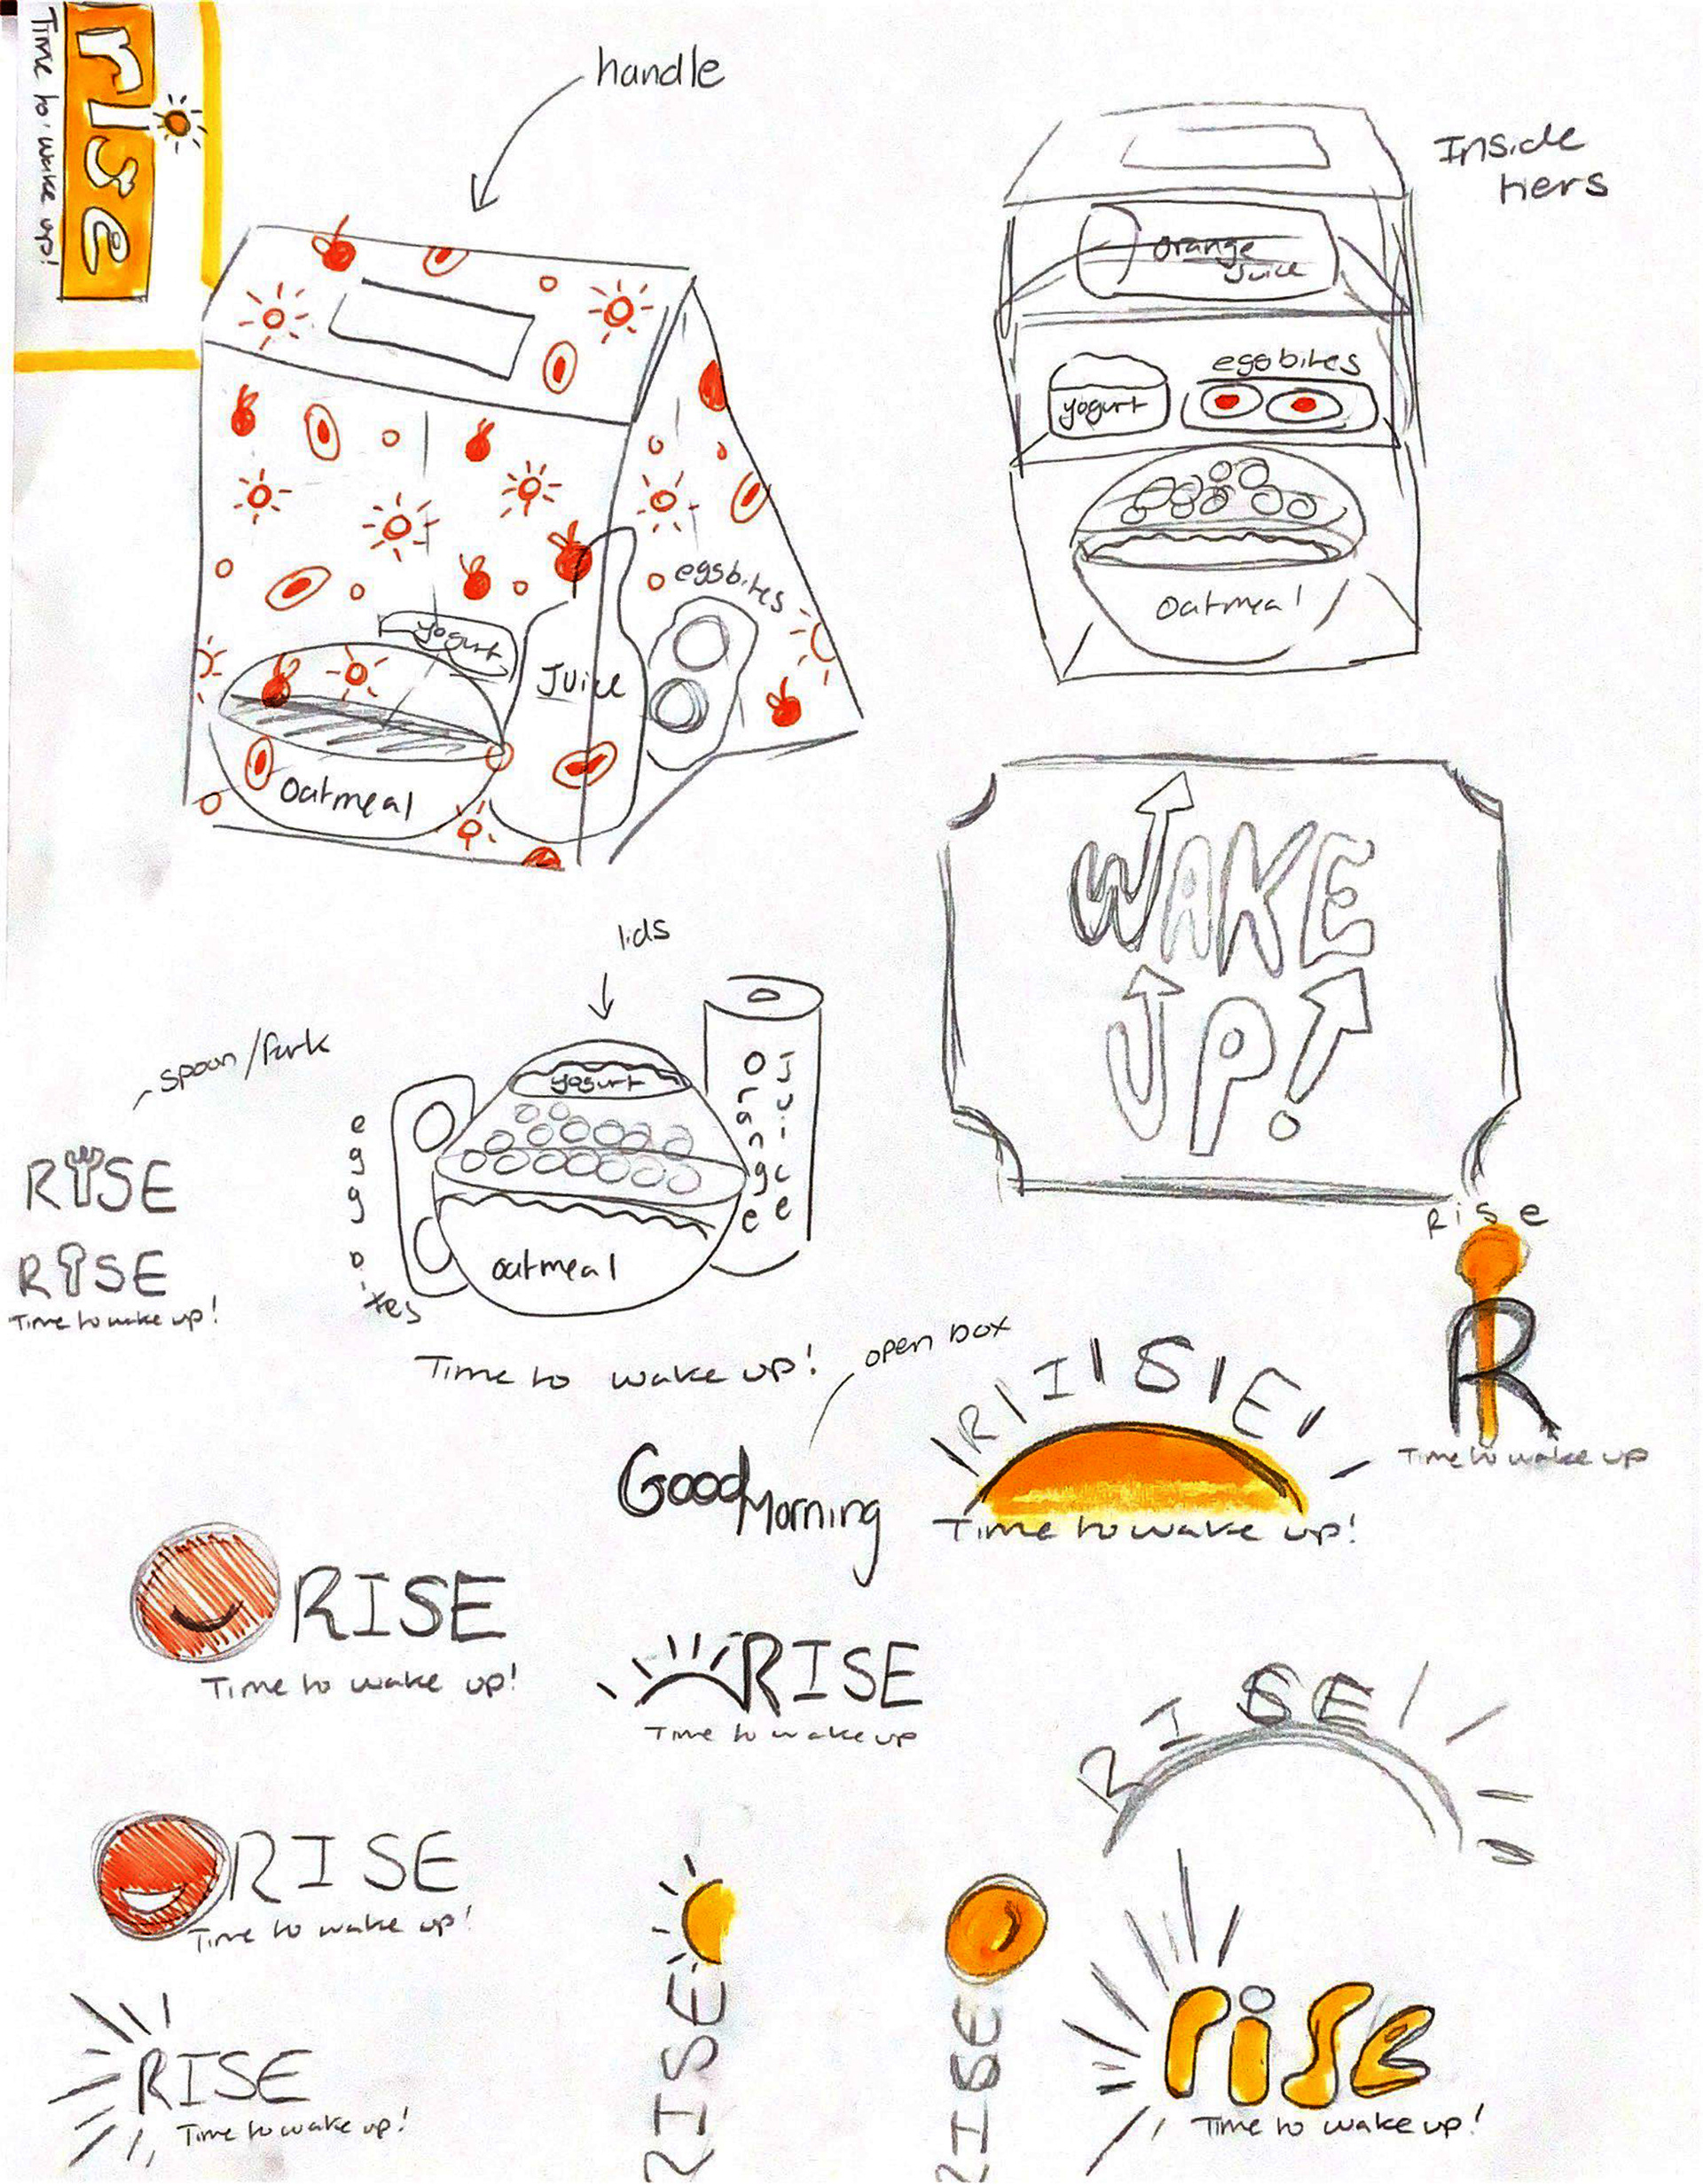 rise
Time to wake up!
handle
Inside
tiers
orange
juice
eggbites
yogurt
oatmeal
eggsbites
yogurt
Juice
Oatmeal
WAKE
UP!
lids
spoon/fork
yogurt
Orange
Juice
egg bites
oatmeal
RISE
RISE
Time to wake up!
Time to wake up!
open box
Good Morning
RISE
Time to wake up!
Rise
R
Time to wake up
RISE
Time to wake up!
RISE
Time to wake up
RISE
RISE
Time to wake up!
RISE
RISE
rise
Time to wake up!
RISE
Time to wake up!